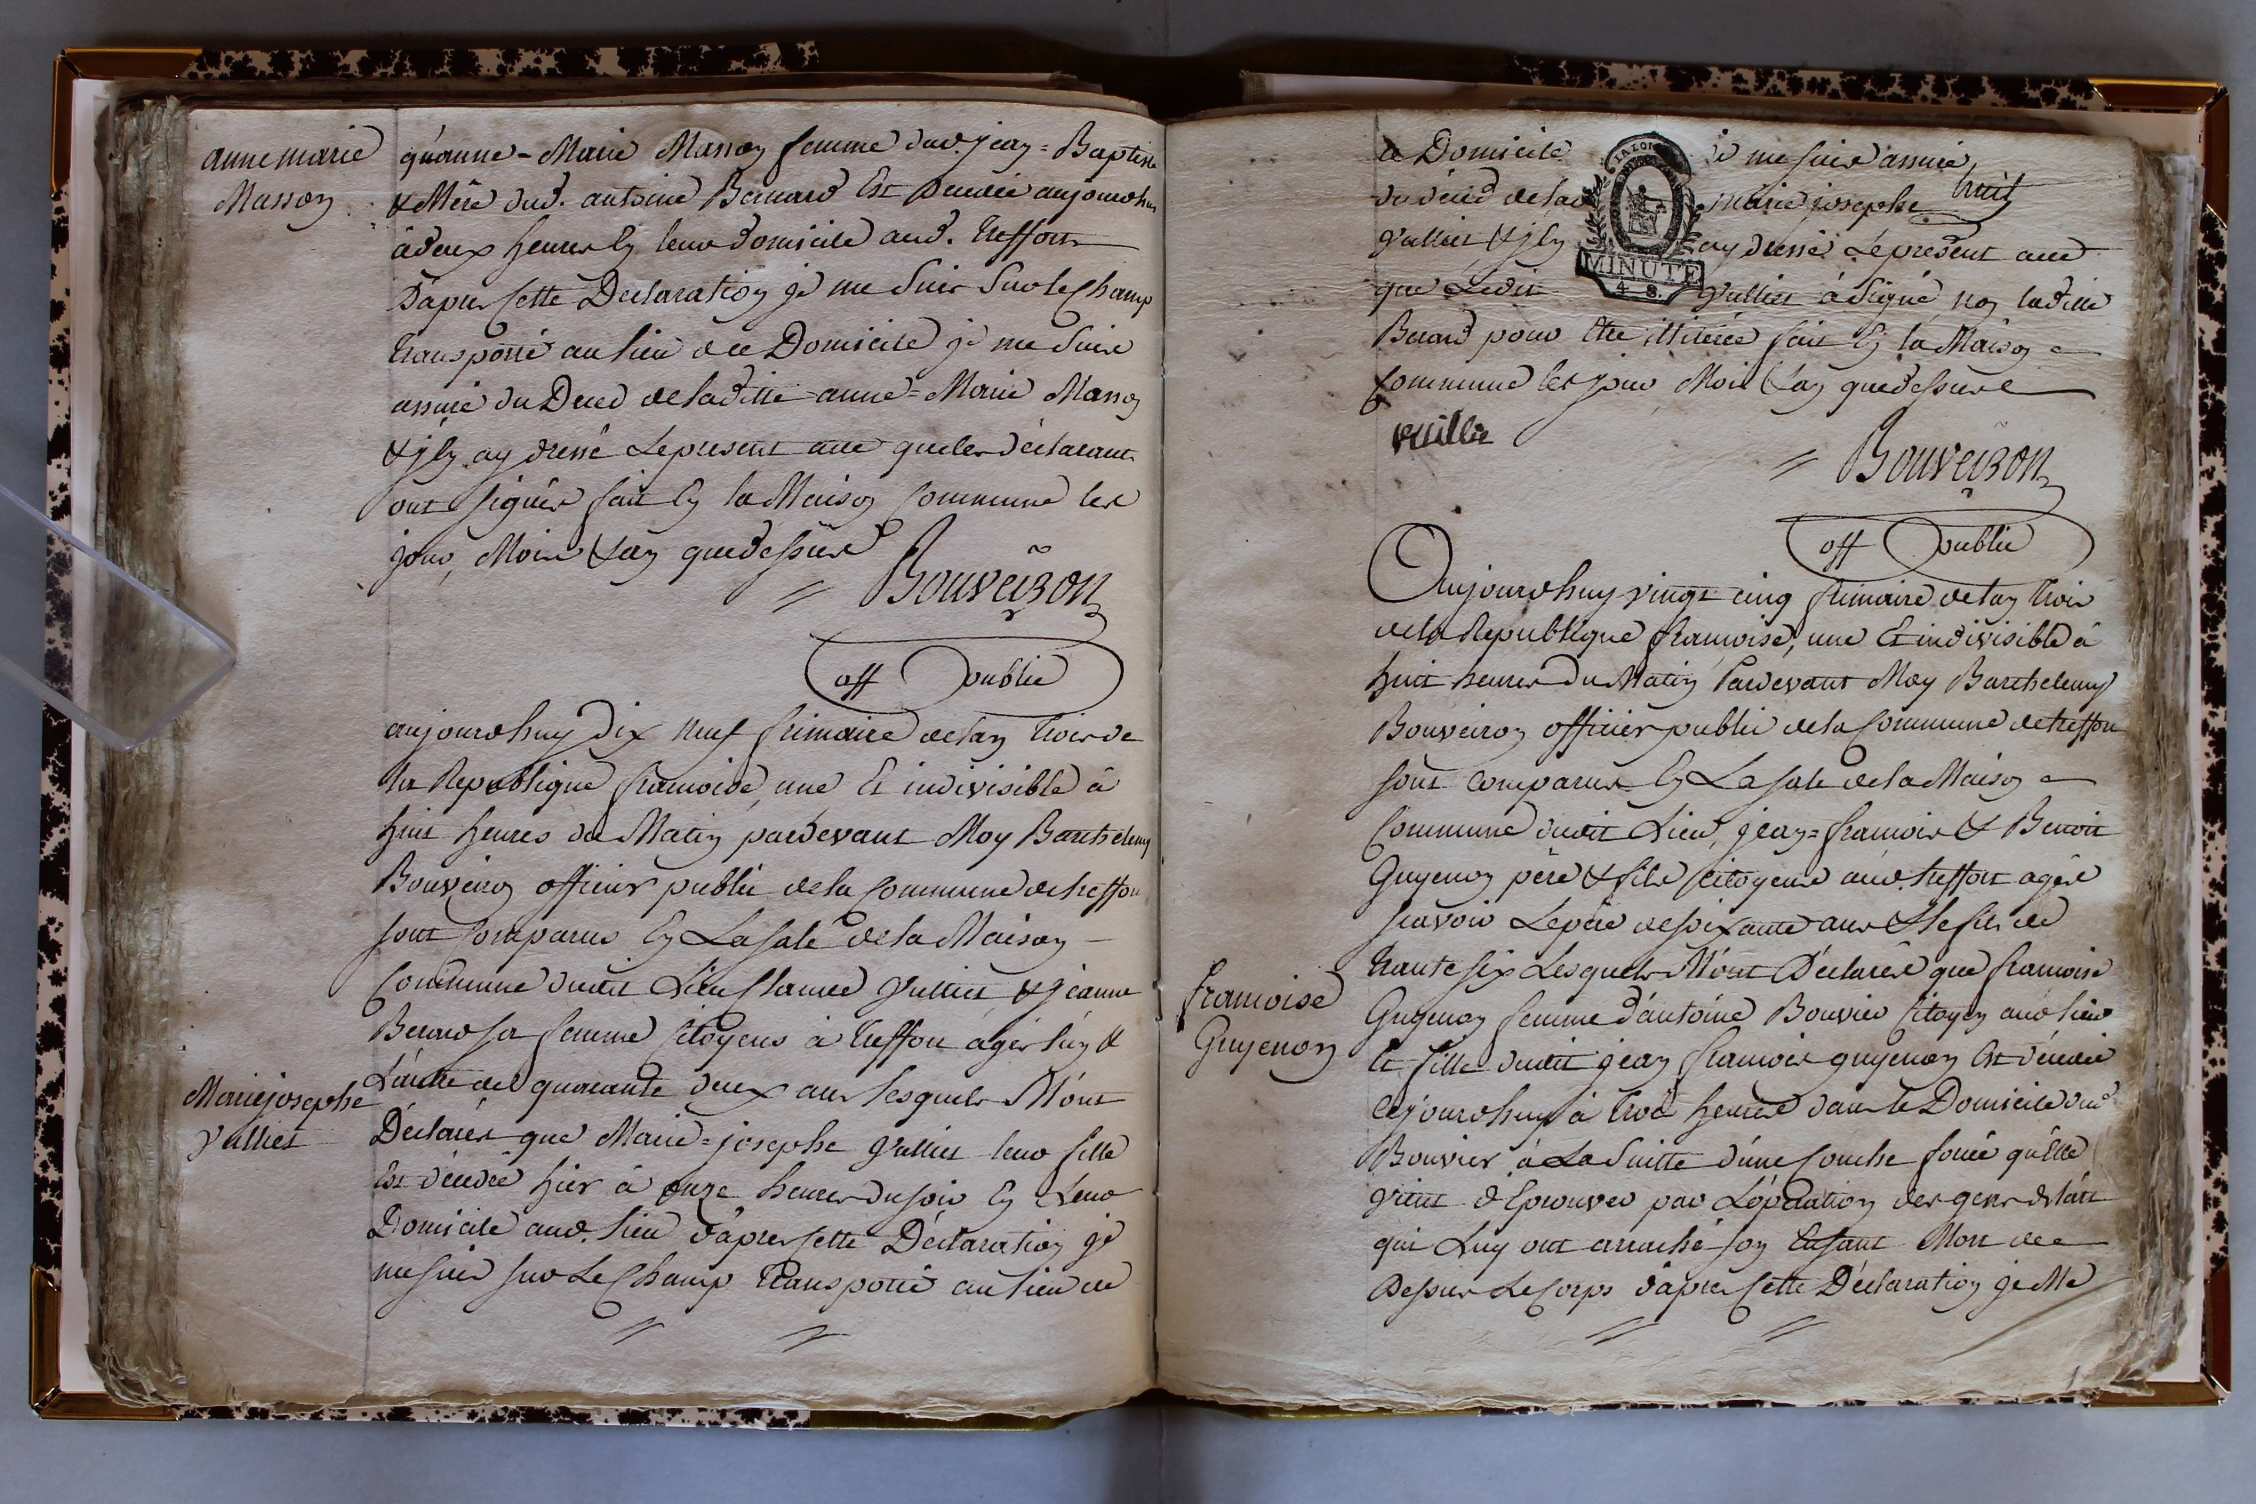 anne marie
Masson
qu'anne - Marie Masson femme dud. jean = Baptiste
& Mère dud. antoine Bernard Est Decedée aujourdhuy
à deux heures En leur domicile aud. treffort
D'apres Cette Declaration je me Suis Sur le Champ
transporté au lieu de Domicile je me Suis
assuré du Deced de laditte anne = Marie Masson
& j'En ay dressé Le present acte que les déclarant
ont Signés fait En la Maison Commune les
jour, Mois & an que dessus
Bouveiron
off public
aujourdhuy Dix neuf frimaire de lan trois de
la Republique francoise, une Et indivisible à
huit heures du Matin pardevant Moy Barthelemy
Bouveiron officier public de la Commune de treffort
sont Comparus En La Sale de la Maison
Commune dudit Lieu Claude Vulliet & jeanne
Berard sa femme Citoyens à treffort agés l'un &
L'autre de quarante deux ans lesquels M'ont
Mariejosephe
Vulliet
Déclarés que Marie = josephe Vulliet leur fille
Est décédée hier à onze heures du soir En Leur
Domicile aud. lieu d'apres Cette Déclaration je
me suis sur Le Champ transporté au lieu de
de Domicile me suis assuré
du déced de lad marie josephe
huit
Vulliet & j'En ay dressé Le present acte
que Ledit Vulliet à Signé non laditte
Berard pour Etre illiterée fait En la Maison
Commune les jour Mois & an que dessus
LA LOI
MINUTE
4 8.
vuillie
Bouveiron
off public
Aujourdhuy vingt cinq frimaire de lan trois
de la Republique francoise, une Et indivisible à
huit heures du Matin Pardevant Moy Barthelemy
Bouveiron officier public de la Commune de treffort
sont comparus En La Sale de la Maison
Commune dudit Lieu, jean = francois & Benoit
Guyenon père & fils Citoyens aud. treffort agés
scavoir Le père de soixante ans & le fils de
trante six Lesquels M'ont Déclarés que francoise
francoise
Guyenon
Guyenon femme d'antoine Bouvier Citoyen aud lieu
Et fille dudit jean francois guyenon Est décedée
cejourdhuy à trois heures dans le Domicile dud
Bouvier à La Suitte d'une Couche forcé qu'Elle
vient d'Eprouver par L'opération des gens de l'art
qui Luy ont arraché son Enfant Mort de
Dessus Le Corps d'apres Cette Déclaration je Me